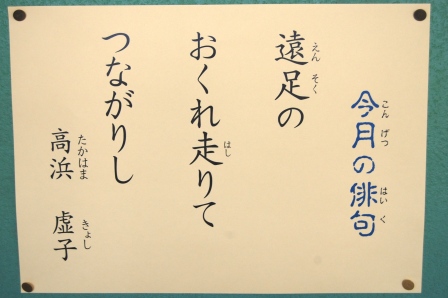 今月の俳句
こんげつ はいく
遠足の
えんそく
おくれ走りて
はし
つながりし
高浜 虚子
たかはま きょし